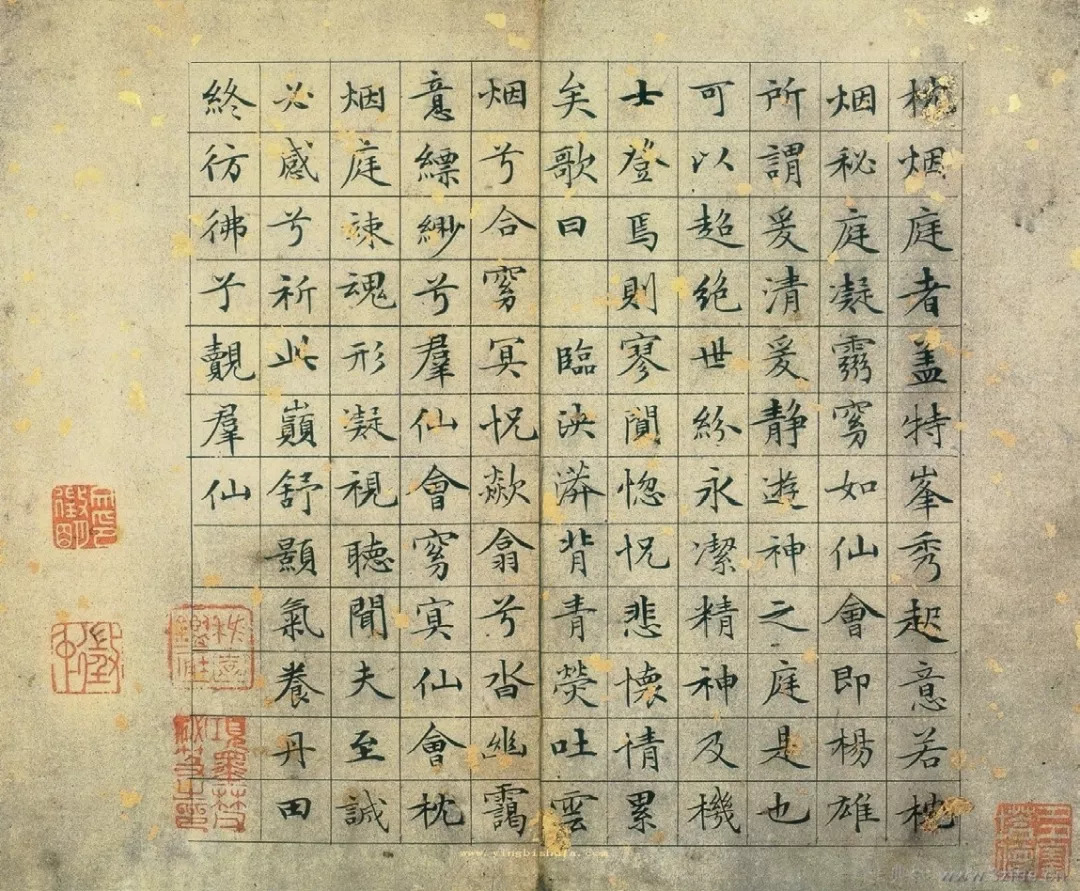 枕烟庭者盖特峯秀起意若枕
烟秘庭凝霛窈如仙會即楊雄
所謂爰清爰静遊神之庭是也
可以超絶世紛永潔精神及機
士登焉則寥闃惚怳悲懷情累
矣歌曰 臨泱漭背青熒吐雲
烟兮合窈冥怳欻翕兮沓幽靄
意縹緲兮羣仙會窈冥仙會枕
烟庭竦魂形凝視聽聞夫至誠
必感兮祈此巔舒顥氣養丹田
終彷彿兮覿羣仙
www.yingbishufa.com